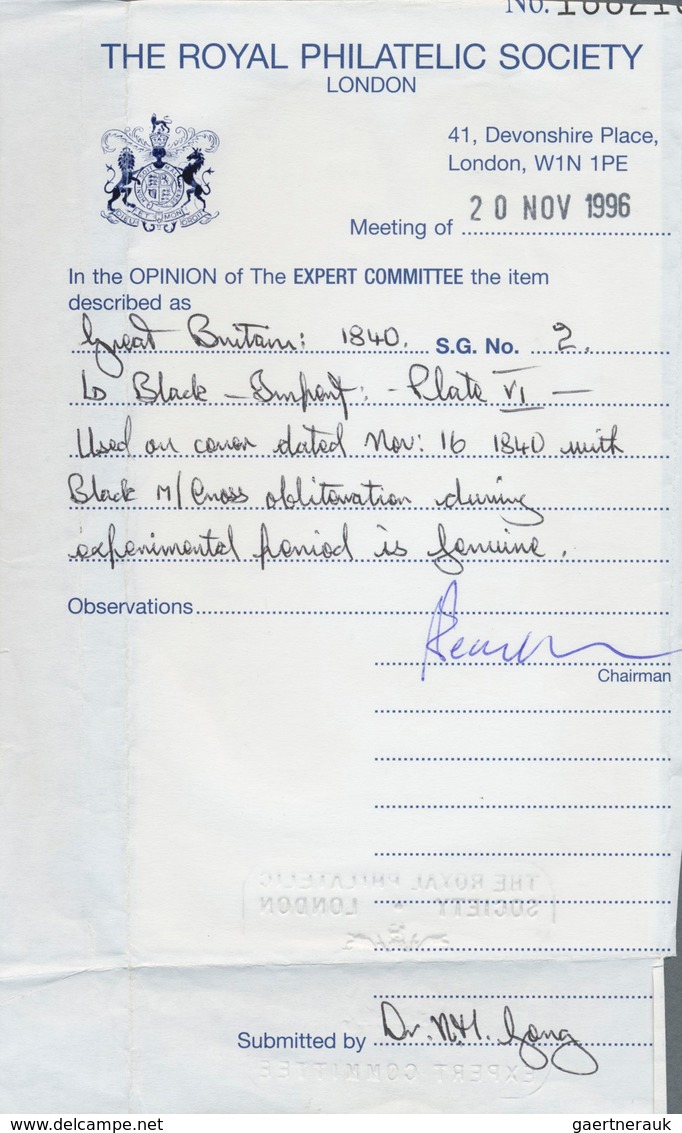 No.
THE ROYAL PHILATELIC SOCIETY
LONDON
41, Devonshire Place,
London, W1N 1PE
Meeting of 20 NOV 1996
In the OPINION of The EXPERT COMMITTEE the item
described as
Great Britain: 1840. S.G. No. 2.
1D Black – Imperf: – Plate VI –
Used on cover dated Nov: 16 1840 with
Black M/Cross obliteration during
experimental period is genuine.
Observations
Chairman
THE ROYAL PHILATELIC
SOCIETY LONDON
Submitted by Dr. N.H.
EXPERT COMMITTEE
gaertnerauk